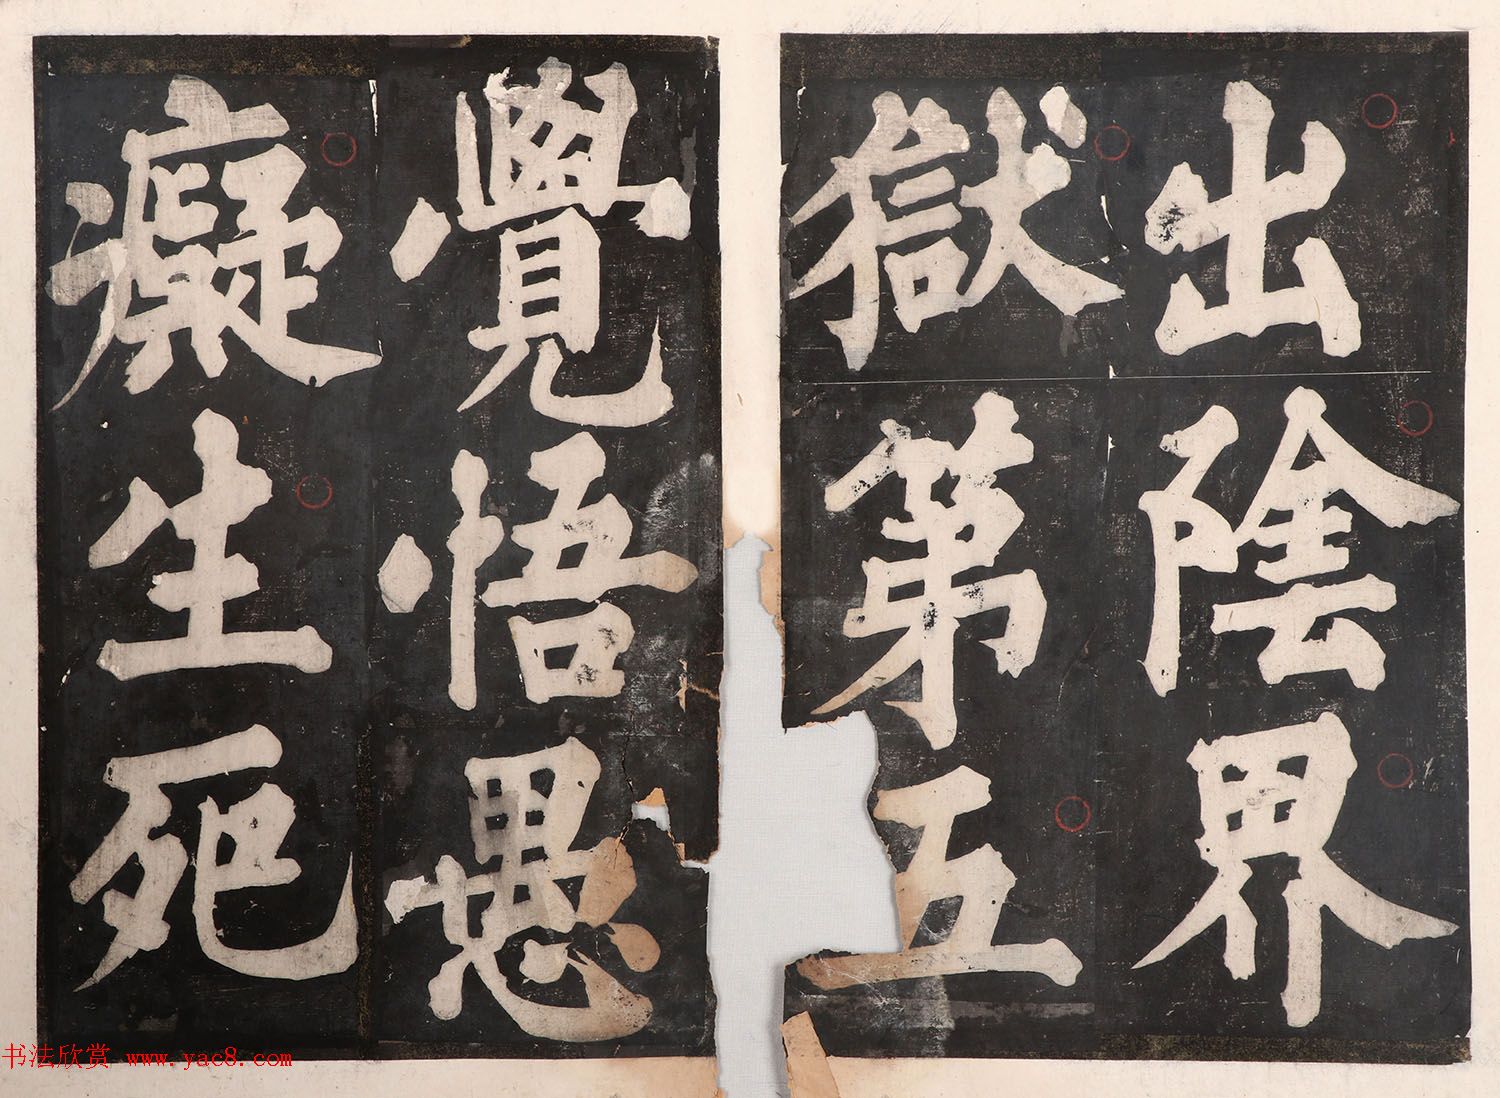 出陰界
獄第五
覺悟愚
癡生死
书法欣赏 www.yac8.com